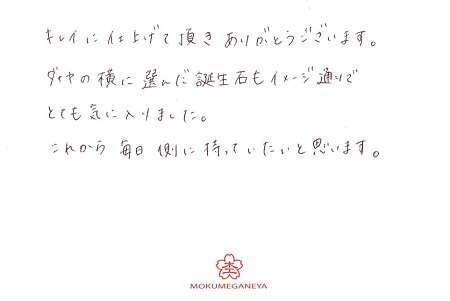 キレイに仕上げて頂きありがとうございます。
ダイヤの横に選んだ誕生石もイメージ通りで
とても気に入りました。
これから毎日側に持っていたいと思います。
杢
MOKUMEGANEYA